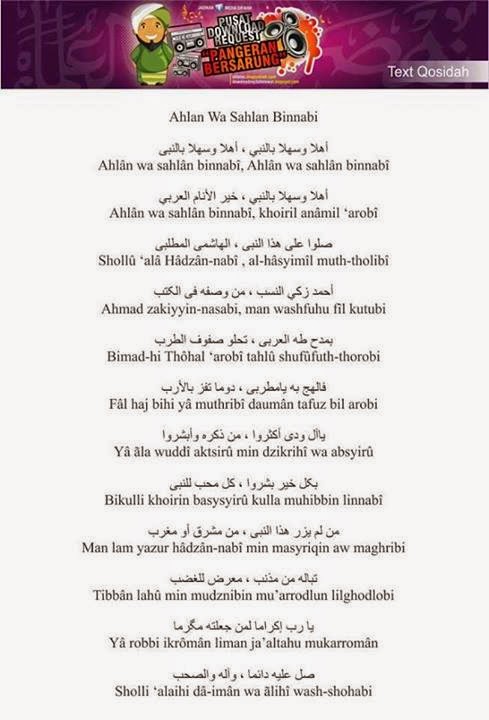 JADIKAN MEDIA DAKWAH
PUSAT
DOWNLOAD
REQUEST
"PANGERAN
BERSARUNG"
Text Qosidah
Ahlan Wa Sahlan Binnabi
أهلا وسهلا بالنبي ، أهلا وسهلا بالنبى
Ahlân wa sahlân binnabî, Ahlân wa sahlân binnabî
أهلا وسهلا بالنبي ، خير الأنام العربي
Ahlân wa sahlân binnabî, khoiril anâmil ‘arobî
صلوا على هذا النبى ، الهاشمى المطلبى
Shollû ‘alâ Hâdzân-nabî , al-hâsyimîl muth-tholibî
أحمد زكي النسب ، من وصفه فى الكتب
Ahmad zakiyyin-nasabi, man washfuhu fîl kutubi
بمدح طه العربى ، تحلو صفوف الطرب
Bimad-hi Thôhal ‘arobî tahlû shufûfuth-thorobi
فالهج به يامطربى ، دوما تفز بالأرب
Fâl haj bihi yâ muthribî daumân tafuz bil arobi
ياآل ودى أكثروا ، من ذكره وأبشروا
Yâ ãla wuddî aktsirû min dzikrihî wa absyirû
بكل خير بشروا ، كل محب للنبى
Bikulli khoirin basysyirû kulla muhibbin linnabî
من لم يزر هذا النبى ، من مشرق أو مغرب
Man lam yazur hâdzân-nabî min masyriqin aw maghribi
تباله من مذنب ، معرض للغضب
Tibbân lahû min mudznibin mu’arrodlun lilghodlobi
يا رب إكراما لمن جعلته مگرما
Yâ robbi ikrômân liman ja’altahu mukarromân
صل عليه دائما ، وآله والصحب
Sholli ‘alaihi dã-imân wa ãlihî wash-shohabi